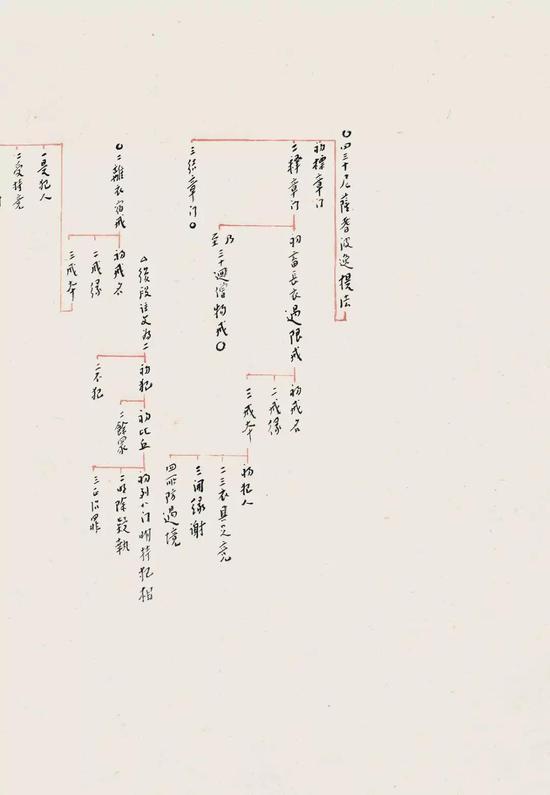 ○四三十尼薩耆波逸提法
初標章门
二釋章门
三結章门○
初畜長衣過限戒
乃至三十迴僧物戒○
初戒名
二戒緣
三戒本
初犯人
二三衣具足竟
三開緣谢
四所防過境
○二離衣宿戒
初戒名
二戒緣
三戒本
△後段註文为二
初犯
二不犯
初比丘
二餘眾
初列八门明持犯相
二明除疑執
三正治罪
一是犯人
二受持竟